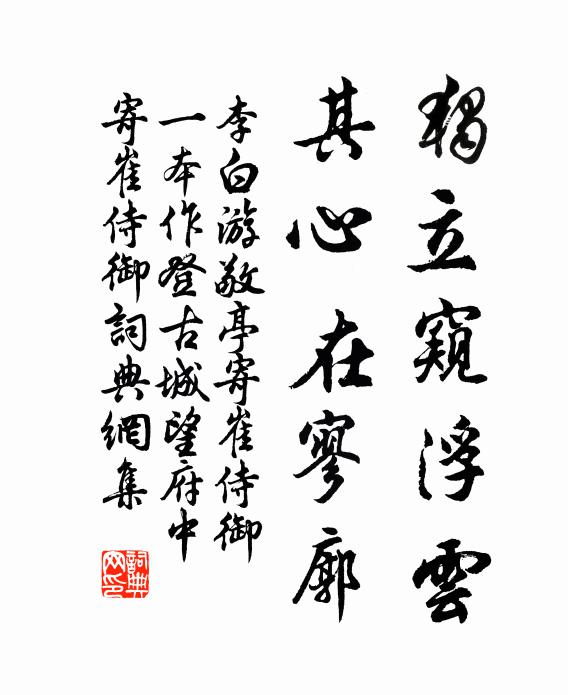 獨立窺浮雲
其心在寥廓
李白游敬亭寄崔侍御
一本作登古城望府中
寄崔侍御詞典網集
詞典網印